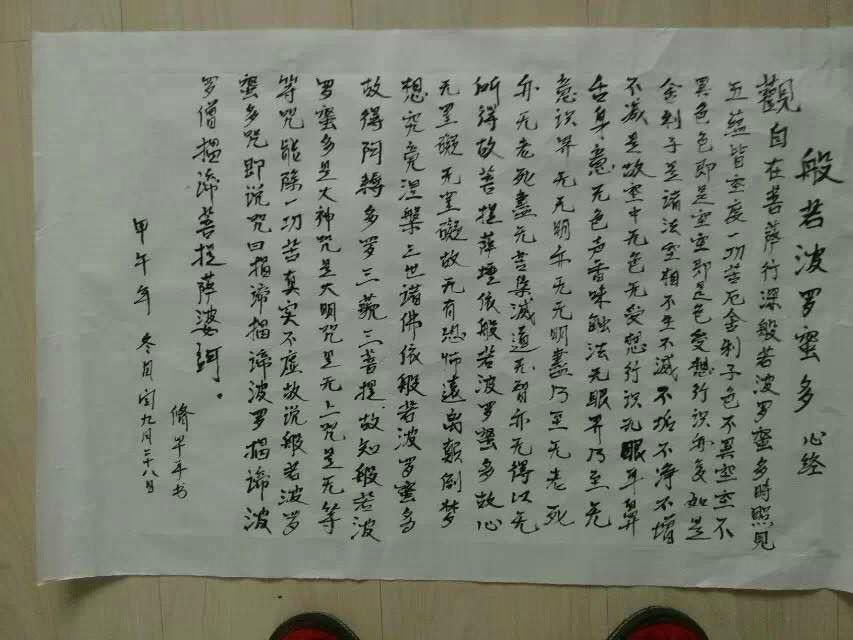 般若波罗蜜多心经
觀自在菩萨行深般若波罗蜜多時照見
五蕴皆空度一切苦厄舍利子色不異空空不
異色色即是空空即是色受想行识亦复如是
舍利子是诸法空相不生不滅不垢不净不增
不减是故空中无色无受想行识无眼耳鼻
舌身意无色声香味触法无眼界乃至无
意识界无无明亦无无明盡乃至无老死
亦无老死盡无苦集滅道无智亦无得以无
所得故菩提萨埵依般若波罗蜜多故心
无罣礙无罣礙故无有恐怖遠离颠倒梦
想究竟涅槃三世诸佛依般若波罗蜜多
故得阿耨多罗三藐三菩提故知般若波
罗蜜多是大神咒是大明咒是无上咒是无等
等咒能除一切苦真实不虚故说般若波罗
蜜多咒即说咒曰揭谛揭谛波罗揭谛波
罗僧揭谛菩提萨婆訶。
甲午年 冬月 闰九月二十八日